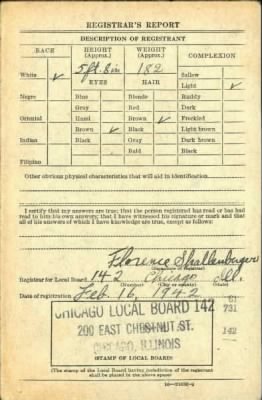 REGISTRAR'S REPORT
DESCRIPTION OF REGISTRANT
RACE HEIGHT (Approx.) WEIGHT (Approx.) COMPLEXION
White ✓ 5 ft. 8 in 182 Sallow
EYES HAIR Light ✓
Negro Blue Blonde Ruddy
Gray Red Dark
Oriental Hazel Brown ✓ Freckled
Brown ✓ Black Light brown
Indian Black Gray Dark brown
Bald Black
Filipino
Other obvious physical characteristics that will aid in identification
I certify that my answers are true; that the person registered has read or has had
read to him his own answers; that I have witnessed his signature or mark and that
all of his answers of which I have knowledge are true, except as follows:
Florence Shallenburger
(Signature of registrar)
Registrar for Local Board 142 Chicago Ill.
(Number) (City or county) (State)
Date of registration Feb 16, 1942
61
731
142
CHICAGO LOCAL BOARD 142
200 EAST CHESTNUT ST.
CHICAGO, ILLINOIS
(STAMP OF LOCAL BOARD)
(The stamp of the Local Board having jurisdiction of the registrant
shall be placed in the above space)